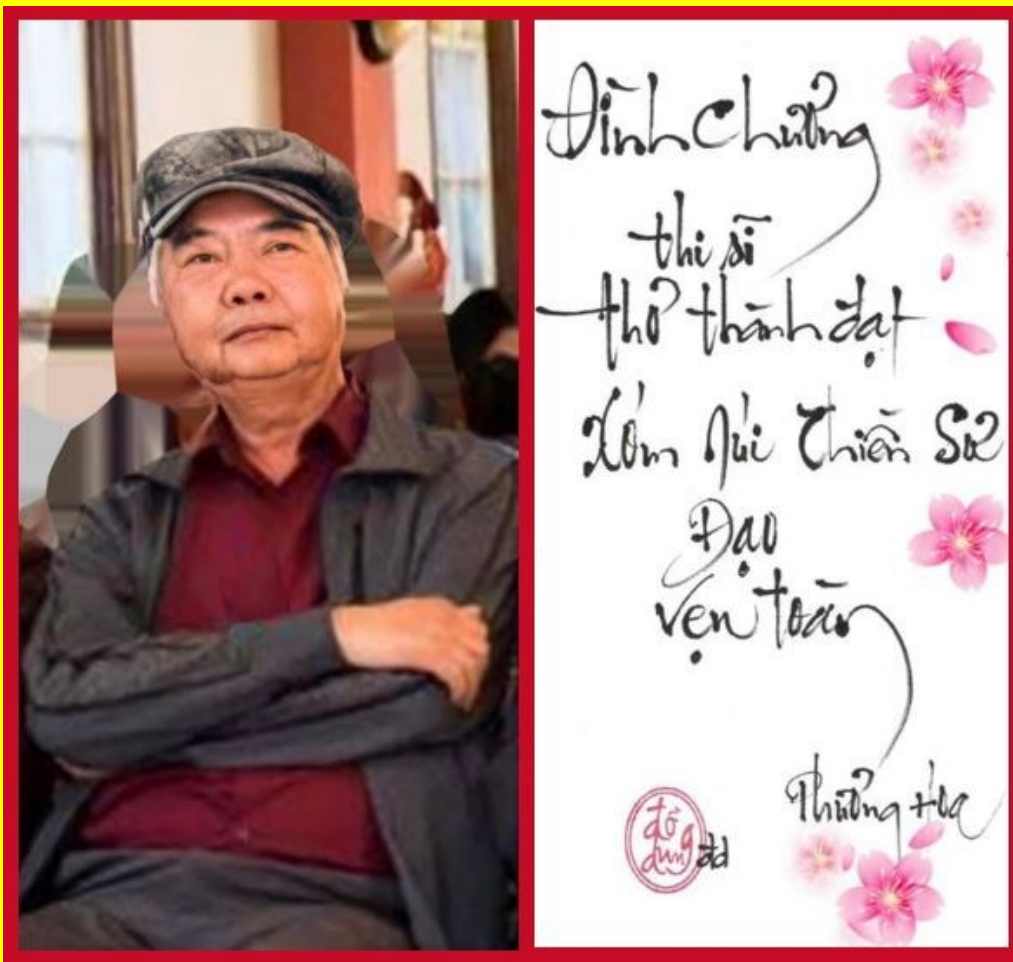 Đình Chương
thi sĩ
thơ thành đạt
Xóm Núi Thiền Sư
Đạo
vẹn toàn
Phương Hoa
đỗ
dung
đd